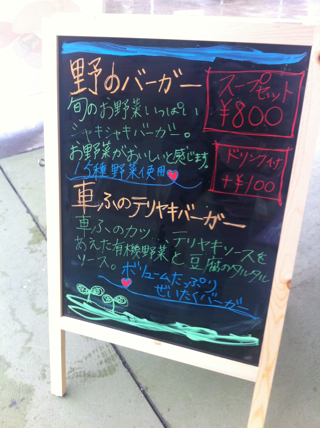 野のバーガー
旬のお野菜いっぱい
シャキシャキバーガー。
お野菜がおいしいと感じます。
15種野菜使用
スープセット
¥800
ドリンク付
+¥100
車ふのテリヤキバーガー
車ふのカツ、テリヤキソースを
あえた有機野菜と豆腐のタルタル
ソース。
ボリュームたっぷり
ぜいたくバーガー!